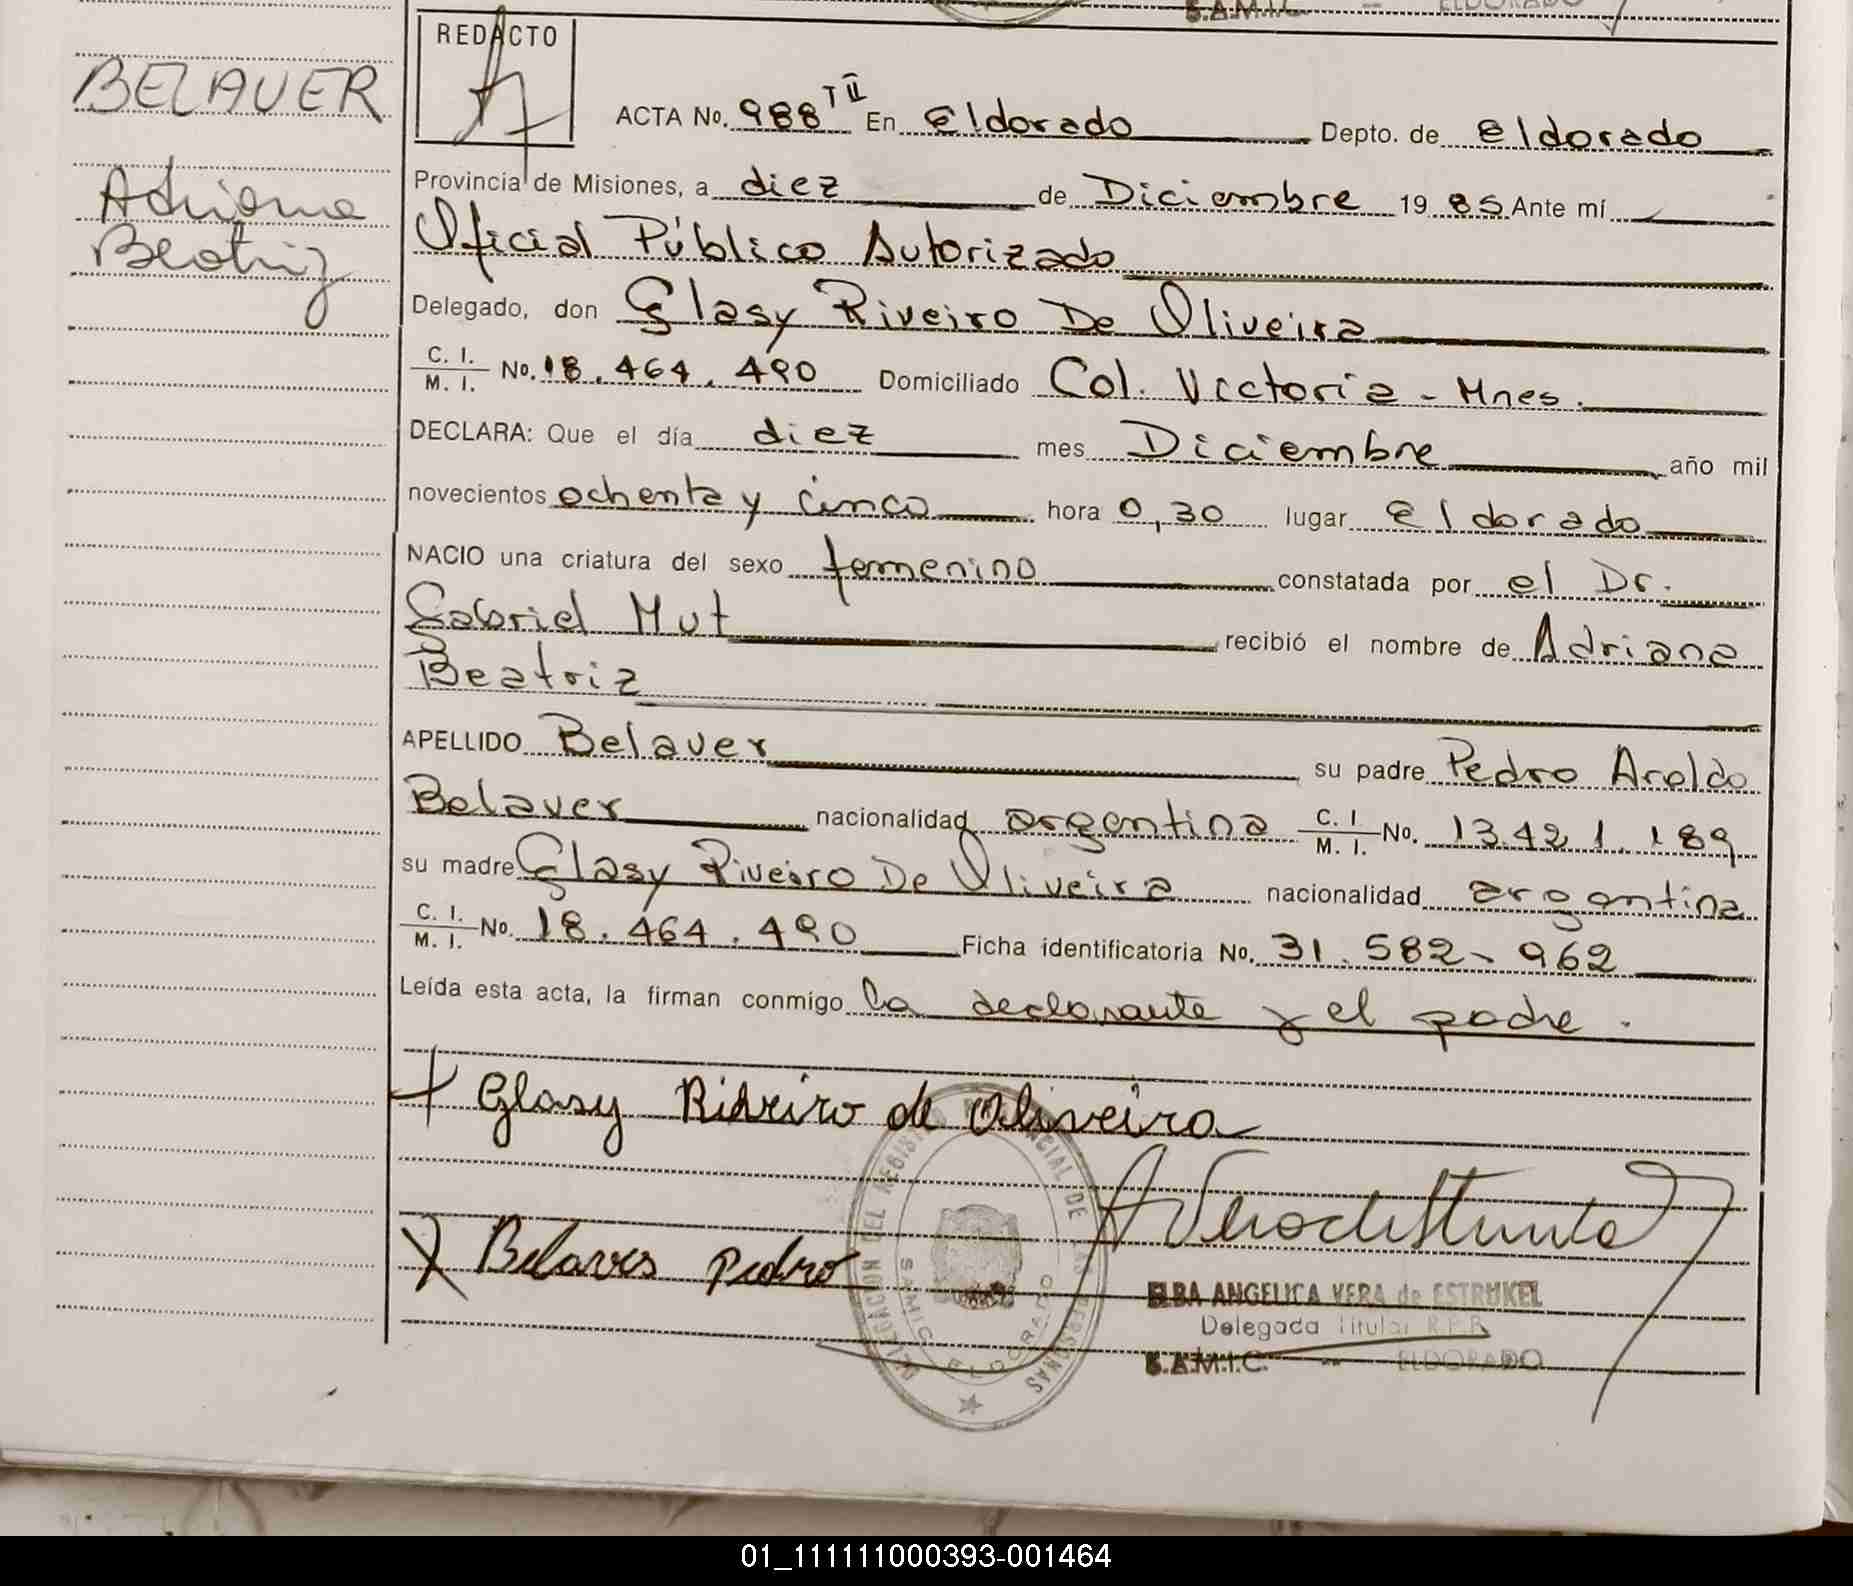 S.A.M.I.C. -- ELDORADO
REDACTO
BELAUER
ACTA No. 988 T II En Eldorado Depto. de eldorado
Adriana
Provincia de Misiones, a diez de Diciembre 19 85 Ante mí
Beatriz
Oficial Público Autorizado
Delegado, don Glasy Riveiro De Oliveira
C. I. / M. I. No. 18.464.490 Domiciliado Col. Victoria - Mnes.
DECLARA: Que el día diez mes Diciembre año mil
novecientos ochenta y cinco hora 0,30 lugar eldorado
NACIO una criatura del sexo femenino constatada por el Dr.
Gabriel Mut recibió el nombre de Adriana
Beatriz
APELLIDO Belaver su padre Pedro Aroldo
Belaver nacionalidad argentina C. I. / M. I. No. 13.421.189
su madre Glasy Riveiro De Oliveira nacionalidad argentina
C. I. / M. I. No. 18.464.490 Ficha identificatoria No. 31.582-962
Leída esta acta, la firman conmigo la declarante y el padre.
Glasy Ribeiro de Oliveira
Belaver pedro
DELEGACION DEL REGISTRO PROVINCIAL DE LAS PERSONAS
SAMIC ELDORADO
ELBA ANGELICA VERA de ESTRUKEL
Delegada Titular R.P.P.
S.A.M.I.C. -- ELDORADO
01_111111000393-001464